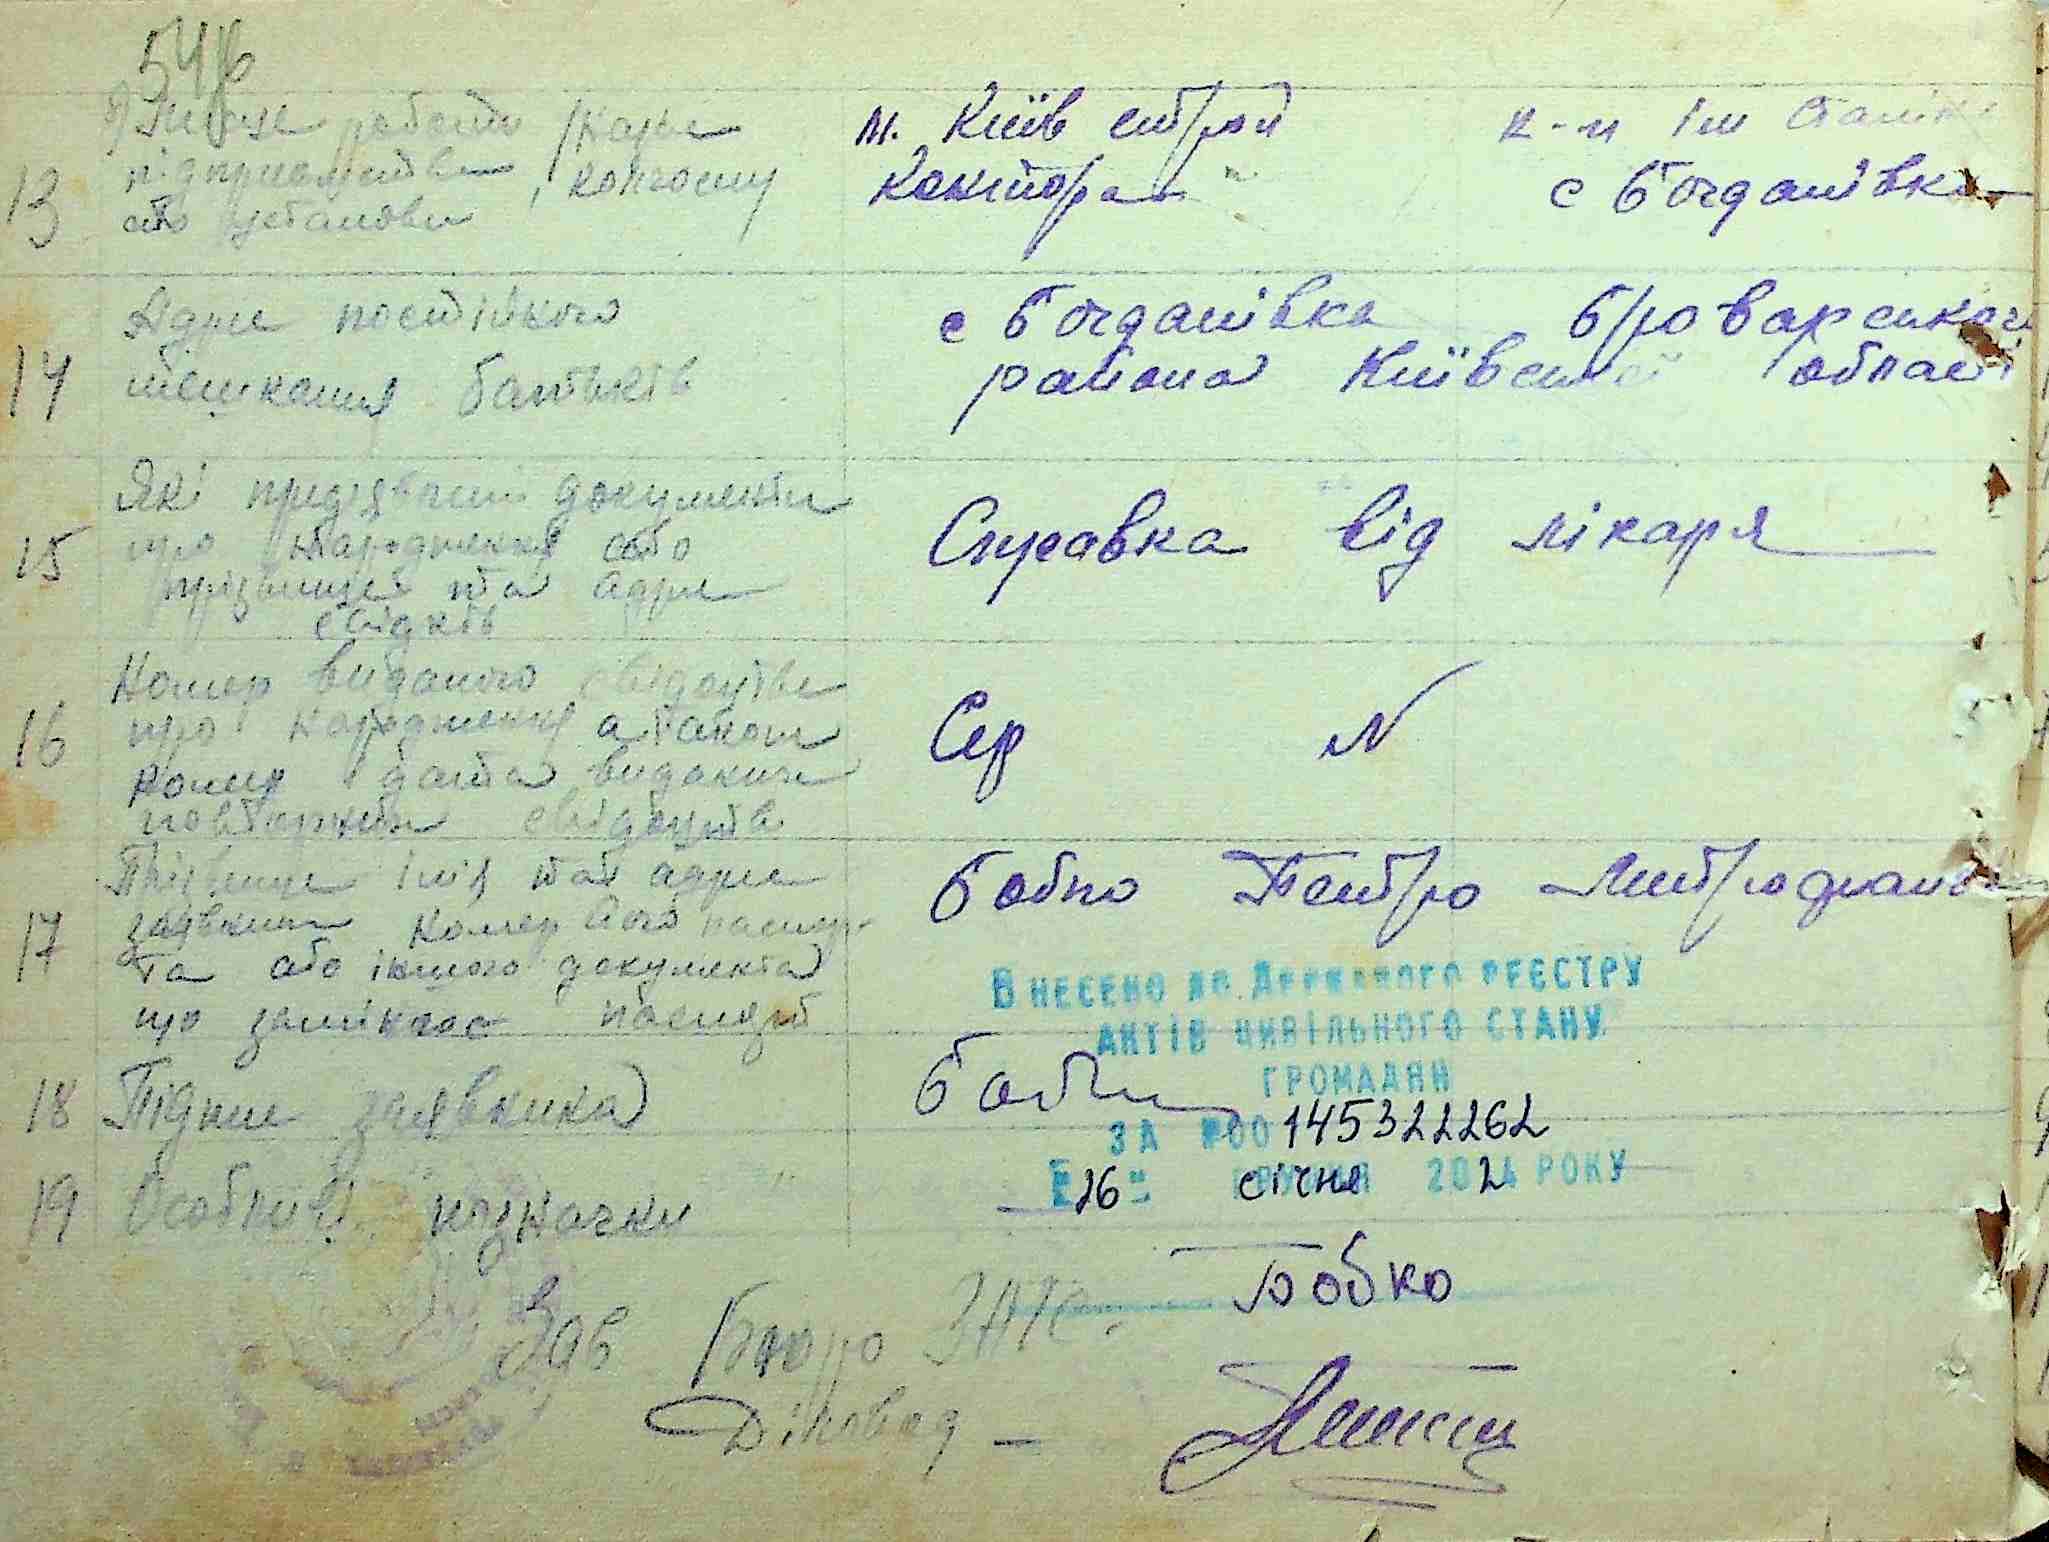 54б
13 Місце роботи /назва м. Київ строй к-п ім Сталіна
підприємства, колгоспу контора с Богданівка
або установи
14 Адрес постійного с Богданівка Броварського
мешкання батьків района Київської області
15 Які предявлені документи Справка від лікаря
про народження або
прізвище та адреса
свідків
16 Номер виданого свідоцтва Сер N
про народження а також
номер дата видачи
повторних свідоцтв
17 Прізвище імя та адреса Бобко Петро Митрофанов
заявника номер його паспор-
та або іншого документа
що заміняє паспорт
ВНЕСЕНО ДО ДЕРЖАВНОГО РЕЄСТРУ
АКТІВ ЦИВІЛЬНОГО СТАНУ
ГРОМАДЯН
18 Підпис заявника Бобко
ЗА №00145322262
"26" січня 2024 РОКУ
19 Особливі позначки
Зав Бюро ЗАГС. Бобко
Діловод –